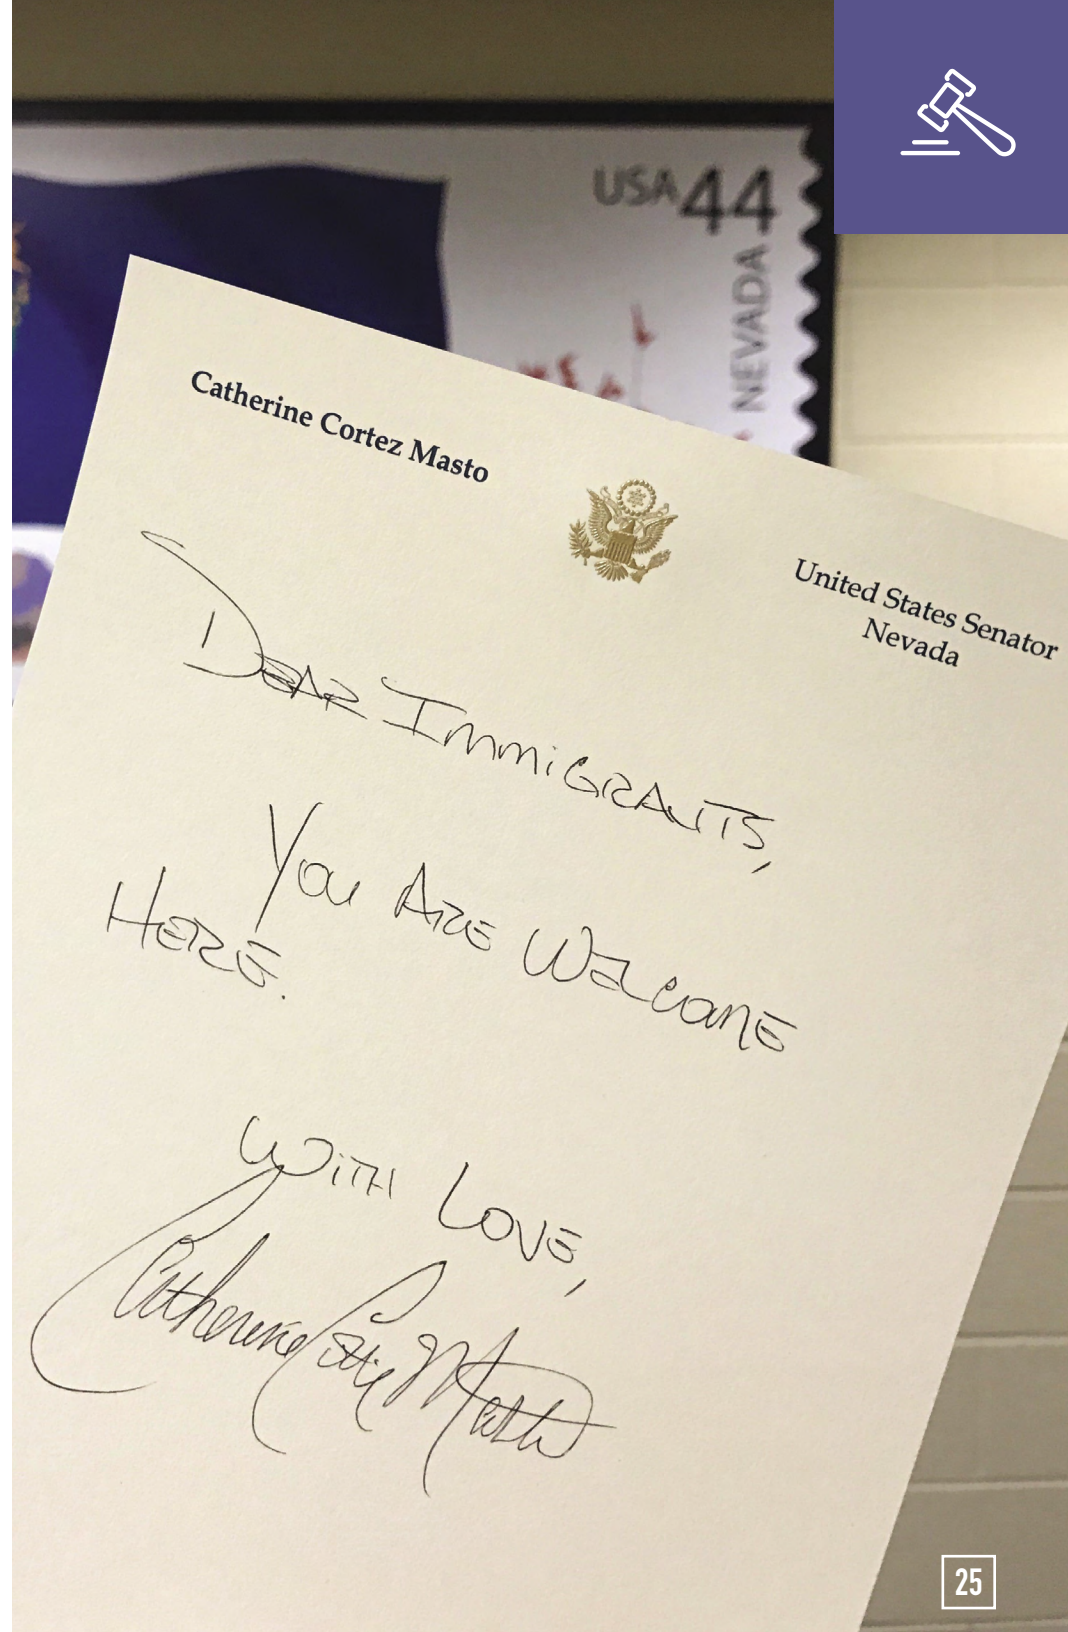 USA 44
NEVADA
Catherine Cortez Masto
United States Senator
Nevada
DEAR IMMIGRANTS,
YOU ARE WELCOME
HERE.
WITH LOVE,
Catherine Cortez Masto
25